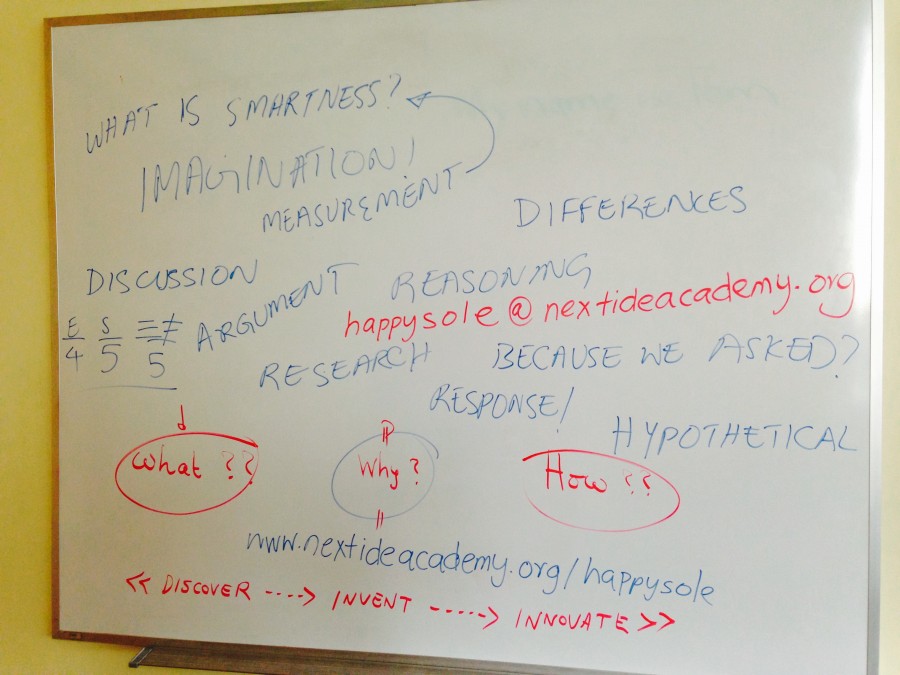 WHAT IS SMARTNESS?
IMAGINATION!
MEASUREMENT
DIFFERENCES
DISCUSSION
ARGUMENT
REASONING
happysole@nextideacademy.org
E S
4 5 5
RESEARCH
BECAUSE WE ASKED?
RESPONSE!
HYPOTHETICAL
What ??
Why?
How??
www.nextideacademy.org/happysole
<< DISCOVER ----> INVENT -----> INNOVATE >>